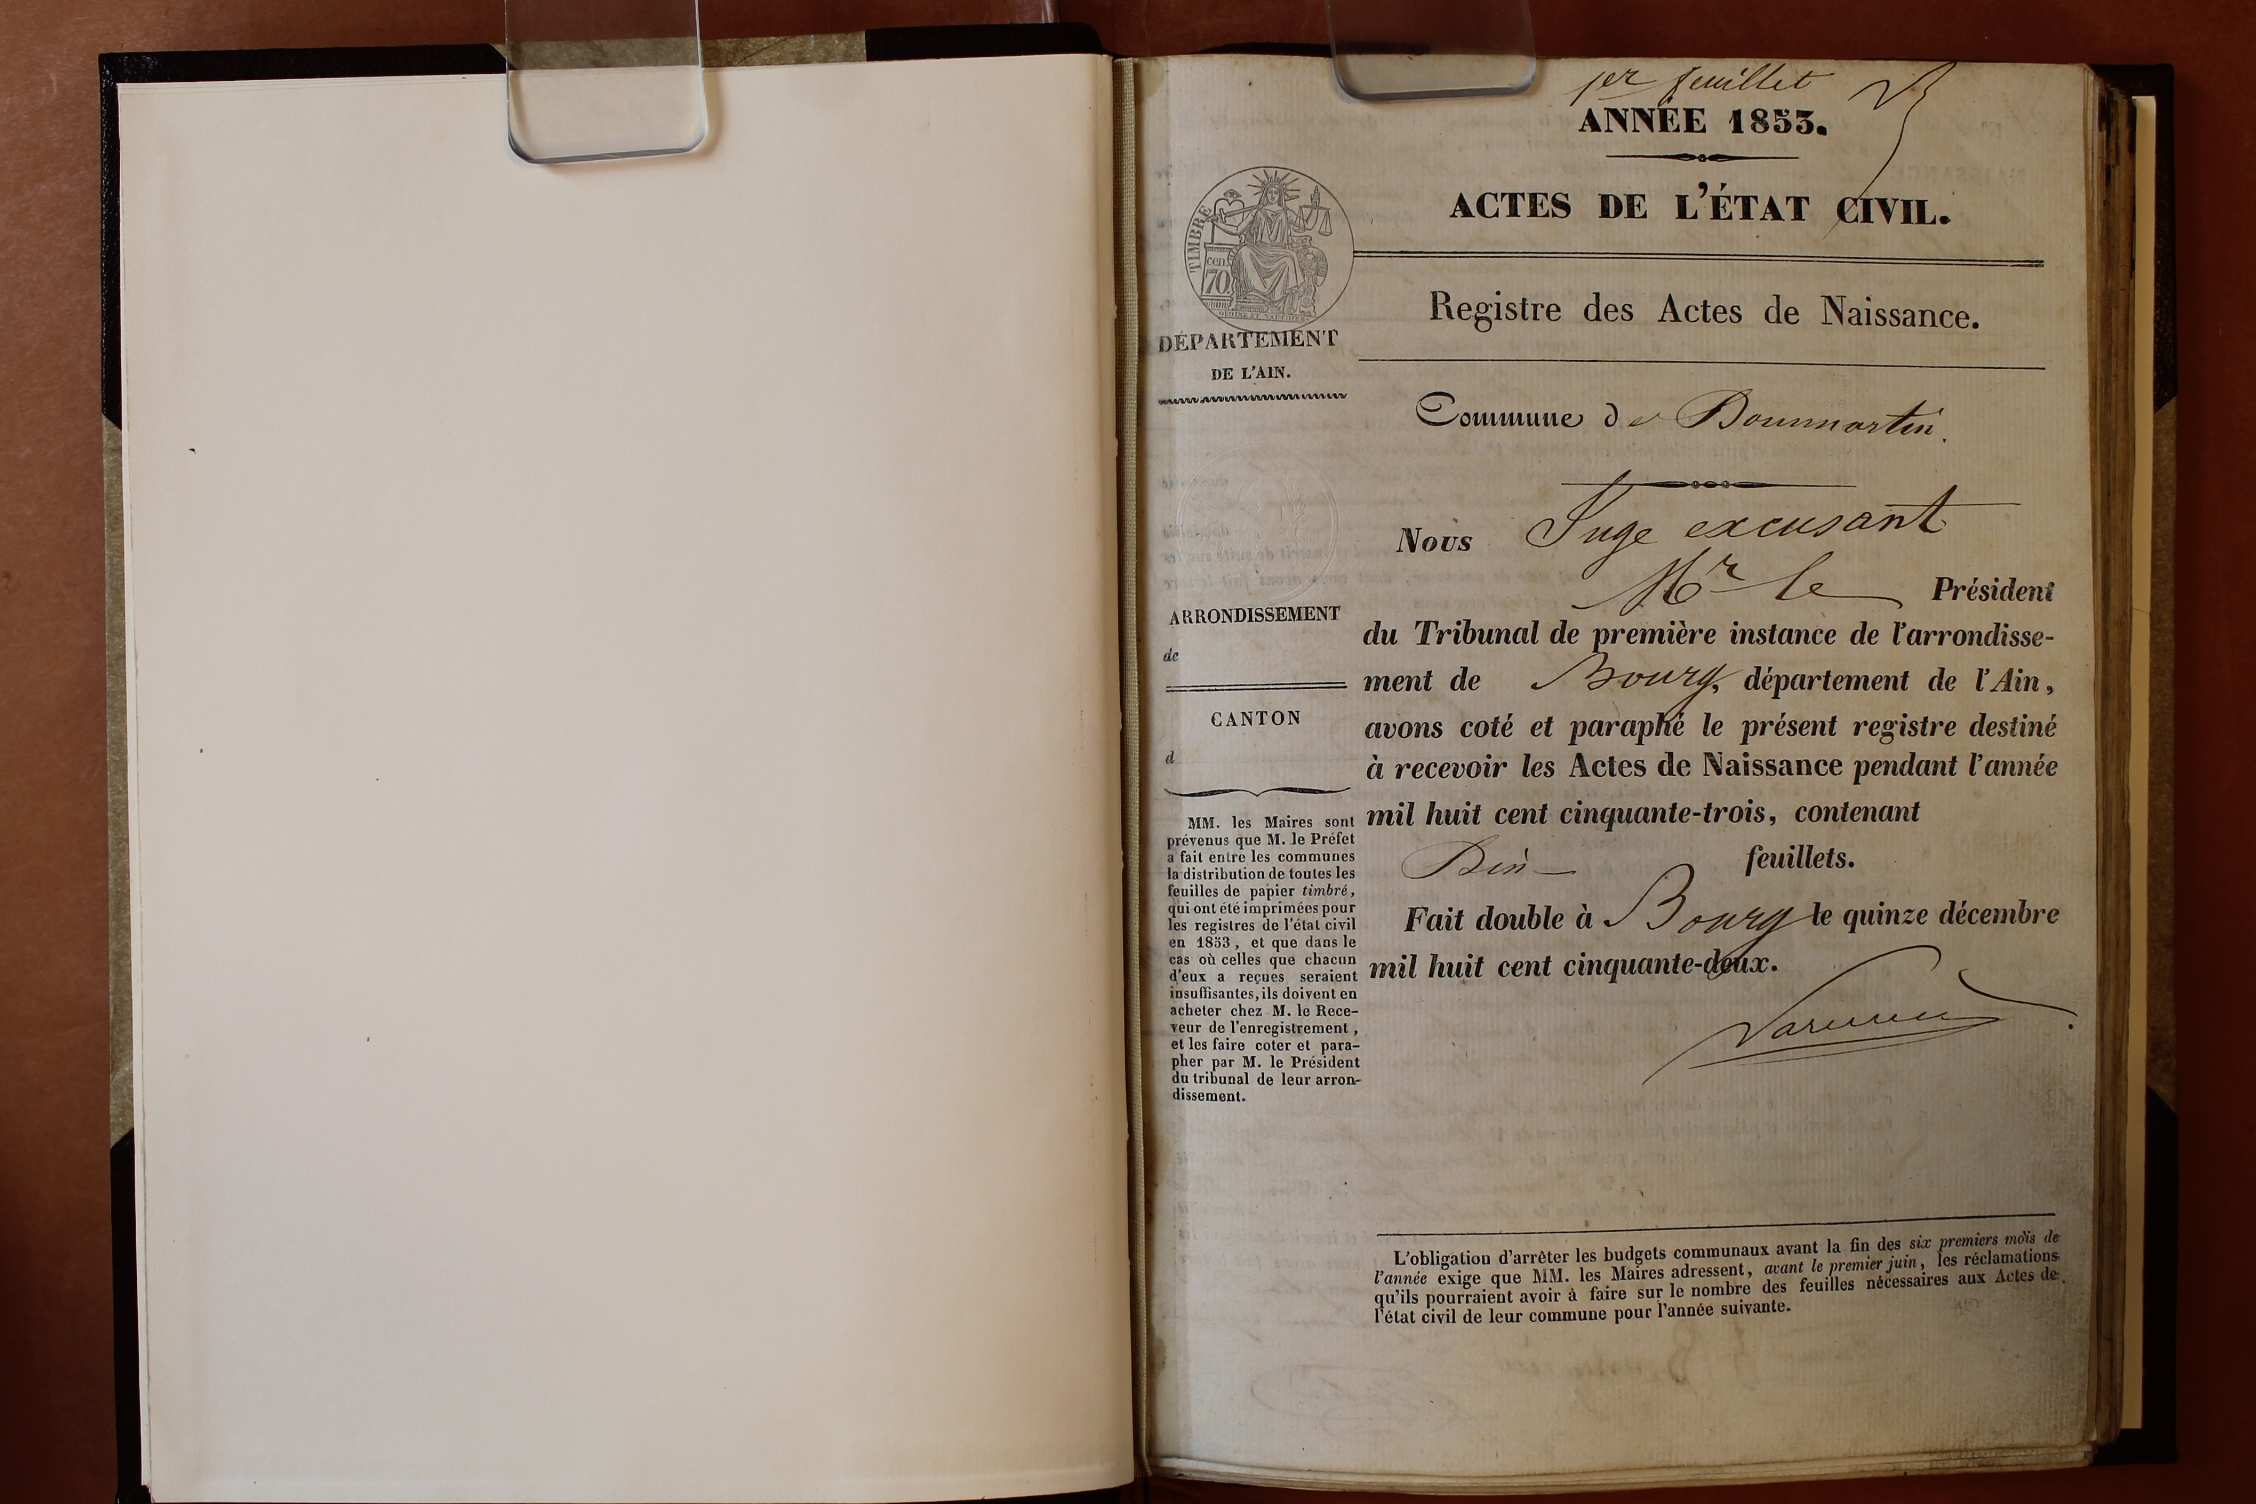 1er feuillet
ANNÉE 1853.
ACTES DE L'ÉTAT CIVIL.
TIMBRE
cen.
70
Registre des Actes de Naissance.
DÉPARTEMENT
DE L'AIN.
Commune de Dommartin.
Nous Juge excusant
Mr le Président
du Tribunal de première instance de l'arrondisse-
ment de Bourg, département de l'Ain,
avons coté et paraphé le présent registre destiné
à recevoir les Actes de Naissance pendant l'année
mil huit cent cinquante-trois, contenant
feuillets.
Fait double à Bourg le quinze décembre
mil huit cent cinquante-deux.
ARRONDISSEMENT
de
CANTON
d
MM. les Maires sont
prévenus que M. le Préfet
a fait entre les communes
la distribution de toutes les
feuilles de papier timbré,
qui ont été imprimées pour
les registres de l'état civil
en 1853, et que dans le
cas où celles que chacun
d'eux a reçues seraient
insuffisantes, ils doivent en
acheter chez M. le Rece-
veur de l'enregistrement,
et les faire coter et para-
pher par M. le Président
du tribunal de leur arron-
dissement.
L'obligation d'arrêter les budgets communaux avant la fin des six premiers mois de
l'année exige que MM. les Maires adressent, avant le premier juin, les réclamations
qu'ils pourraient avoir à faire sur le nombre des feuilles nécessaires aux Actes de
l'état civil de leur commune pour l'année suivante.